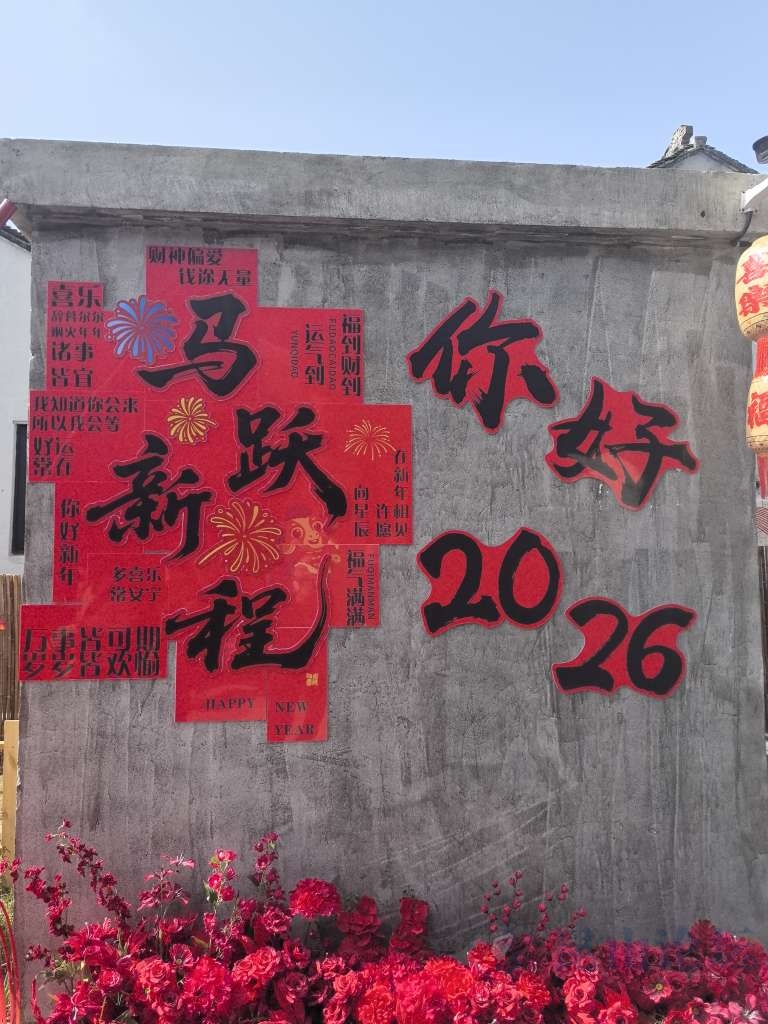 财神偏爱
钱途无量
喜乐
辞暮尔尔
烟火年年
诸事
皆宜
马
跃
新
程
福到财到
FUDAOCAIDAO
运气到
YUNQIDAO
我知道你会来
所以我会等
好运
常在
在新年相见
许愿
向星辰
你好新年
多喜乐
常安宁
福气满满
FUQIMANMAN
万事皆可期
岁岁皆欢愉
HAPPY
NEW
YEAR
你好
2026
福